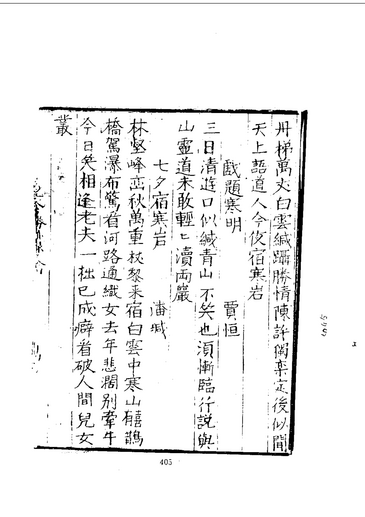 丹梯萬丈白雲緘躡勝情陳許闊棊定後似聞
天上語道人今夜宿寒岩
戲題寒明 賈恒
三日清遊口似緘青山不笑也須慚臨行説與
山靈道未敢輕〻瀆両巖
七夕宿寒岩 潘
林壑峰巒秋萬重杖藜来宿白雲中寒山有鵲
橋駕瀑布驚看河路通織女去年悲濶别牽牛
今日笑相逢老夫一拙已成癖看破人間兒女
叢
405